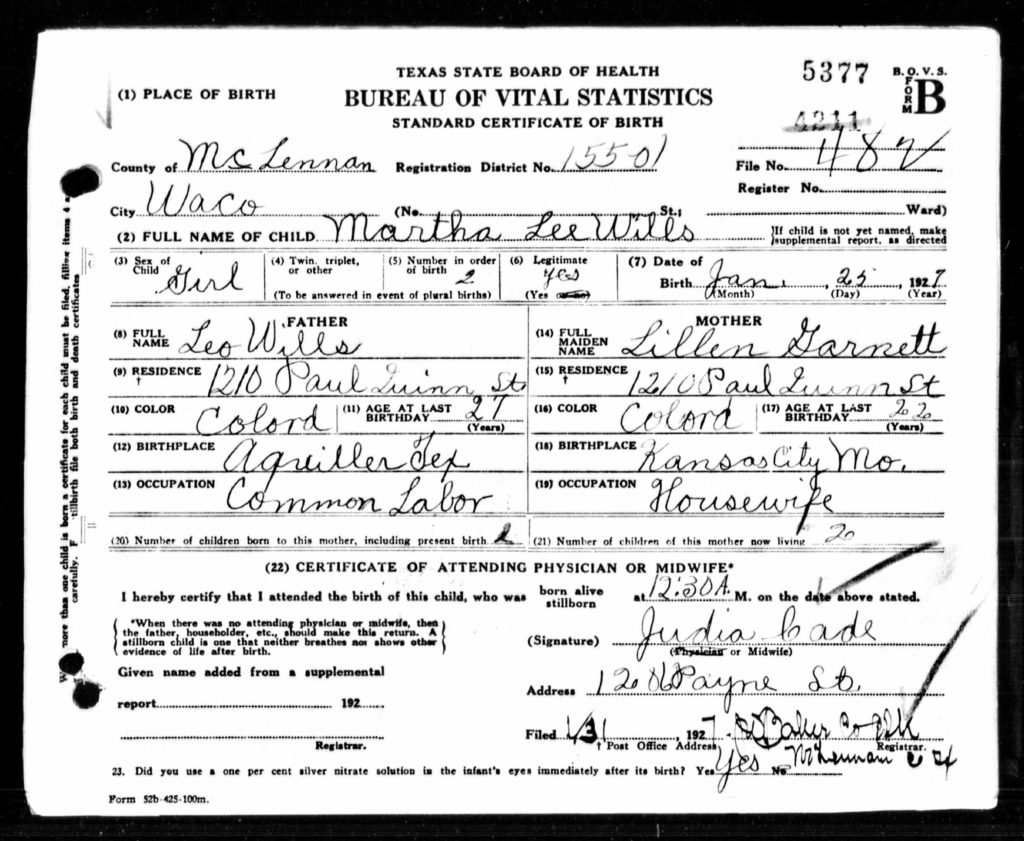 TEXAS STATE BOARD OF HEALTH
5377
B. O. V. S. FORM B
(1) PLACE OF BIRTH
BUREAU OF VITAL STATISTICS
STANDARD CERTIFICATE OF BIRTH
4211
County of McLennan Registration District No. 15501 File No. 482
Register No.
City Waco (No. St.; Ward)
(2) FULL NAME OF CHILD Martha Lee Wills If child is not yet named, make supplemental report, as directed
(3) Sex of Child Girl (4) Twin, triplet, or other (5) Number in order of birth 2 (6) Legitimate yes (7) Date of Birth Jan. 25, 1927
(To be answered in event of plural births) (Yes or no) (Month) (Day) (Year)
FATHER MOTHER
(8) FULL NAME Leo Wills (14) FULL MAIDEN NAME Lillen Garnett
(9) RESIDENCE † 1210 Paul Quinn St (15) RESIDENCE † 1210 Paul Quinn St
(10) COLOR Colord (11) AGE AT LAST BIRTHDAY 27 (Years) (16) COLOR Colord (17) AGE AT LAST BIRTHDAY 22 (Years)
(12) BIRTHPLACE Aqueiller Tex (18) BIRTHPLACE Kansas City Mo.
(13) OCCUPATION Common Labor (19) OCCUPATION Housewife
(20) Number of children born to this mother, including present birth 2 (21) Number of children of this mother now living 2
(22) CERTIFICATE OF ATTENDING PHYSICIAN OR MIDWIFE*
I hereby certify that I attended the birth of this child, who was born alive stillborn at 12:30 A. M. on the date above stated.
*When there was no attending physician or midwife, then
the father, householder, etc., should make this return. A
stillborn child is one that neither breathes nor shows other
evidence of life after birth.
(Signature) Judia Cade
(Physician or Midwife)
Given name added from a supplemental
Address Payne St.
report 192
Filed 1/31 1927
Registrar. † Post Office Address Registrar.
McLennan
23. Did you use a one per cent silver nitrate solution in the infant's eyes immediately after its birth? Yes Yes No
Form 52b-425-100m.
more than one child is born a certificate for each child must be filed, filling items 4 a
carefully. tillbirth file both birth and death certificates